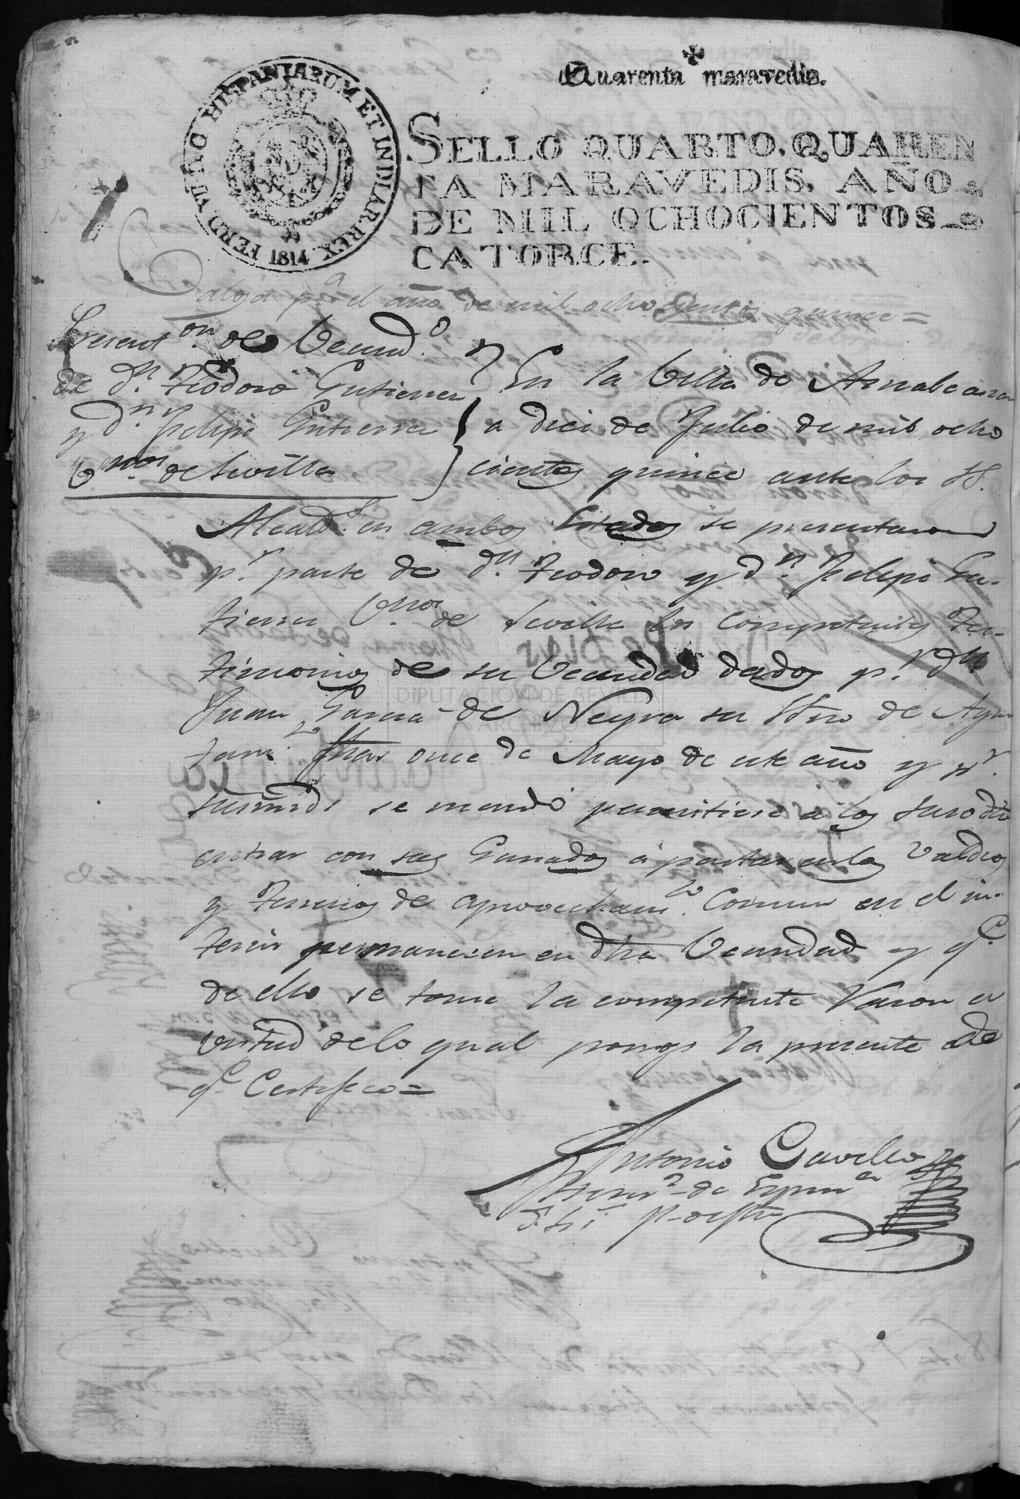 Quarenta maravedis.
SELLO QUARTO, QUAREN
TA MARAVEDIS, AÑO
DE MIL OCHOCIENTOS
CATORCE.
FERD VII D G HISPANIARUM ET INDIAR REX. 1814
Valga pª el año de mil ochocientos quince =
Presenton de Vecindd
de Dn Teodoro Gutierrez
y Dn Felipe Gutierrez
Vnos de Sevilla
En la Villa de Aznalcazar
a diez de Julio de mil ocho
cientos quince ante los SS.
Alcaldes en ambos Estados se presentaron
pr parte de Dn Teodoro y Dn Felipe Gu-
tierrez Vnos de Sevilla los competentes Tes-
timonios de su Vecindad dados pr Dn
Juan Garcia de Neyra su Essno de Ayun
tamto fhas once de Mayo de este año y pr
sus mrds se mandó permitiese a los susodhos
entrar con sus Ganados a pastar en los Valdios
y Terrenos de aprovechamto Comun en el in-
terin permanecen en dha Vecindad y qe
de ello se tome la competente Razon en
virtud de lo qual pongo la presente de
qe Certifico =
Antonio
DIPUTACIÓN DE SEVILLA